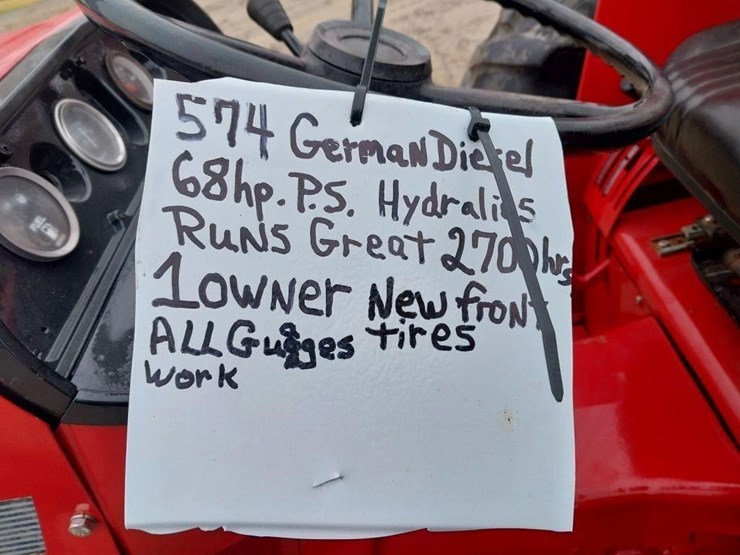 574 German Diesel
68hp. P.S. Hydralics
Runs Great 2700 hrs
1 owner New front
ALL Guages tires
work